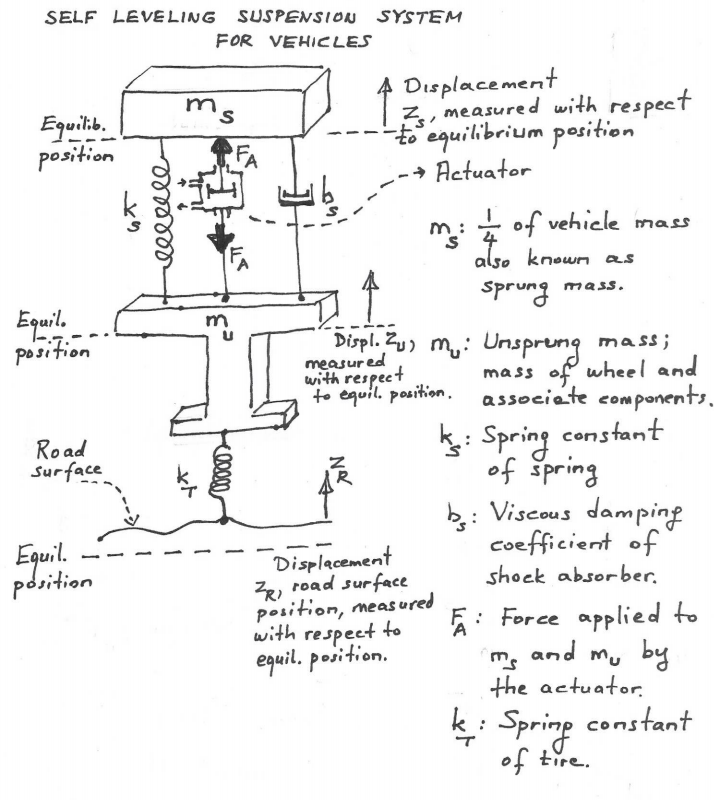 SELF LEVELING SUSPENSION SYSTEM
FOR VEHICLES
m_s
Displacement
z_s, measured with respect
to equilibrium position
Equilib.
position
F_A
Actuator
k_s
b_s
F_A
m_s: 1/4 of vehicle mass
also known as
sprung mass.
Equil.
position
m_u
Displ. z_u,
measured
with respect
to equil. position.
m_u: Unsprung mass;
mass of wheel and
associate components.
k_s: Spring constant
of spring
Road
surface
k_T
z_R
b_s: Viscous damping
coefficient of
shock absorber.
Equil.
position
Displacement
z_R, road surface
position, measured
with respect to
equil. position.
F_A: Force applied to
m_s and m_u by
the actuator.
k_T: Spring constant
of tire.